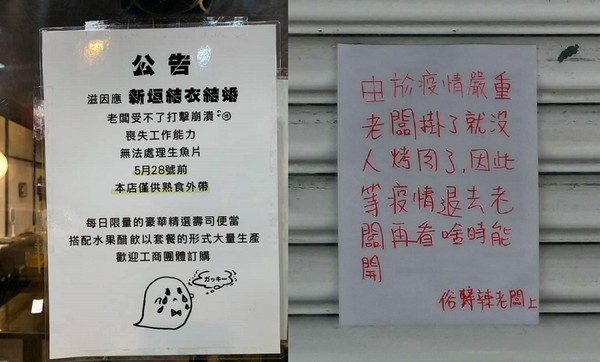 公告
滋因應 新垣結衣結婚
老闆受不了打擊崩潰
喪失工作能力
無法處理生魚片
5月28號前
本店僅供熟食外帶
每日限量的豪華精選壽司便當
搭配水果醋飲以套餐的形式大量生產
歡迎工商團體訂購
ガッキー
由於疫情嚴重
老闆掛了就沒
人烤肉了,因此
等疫情退去老
闆再看啥時能
開
俗辣老闆上